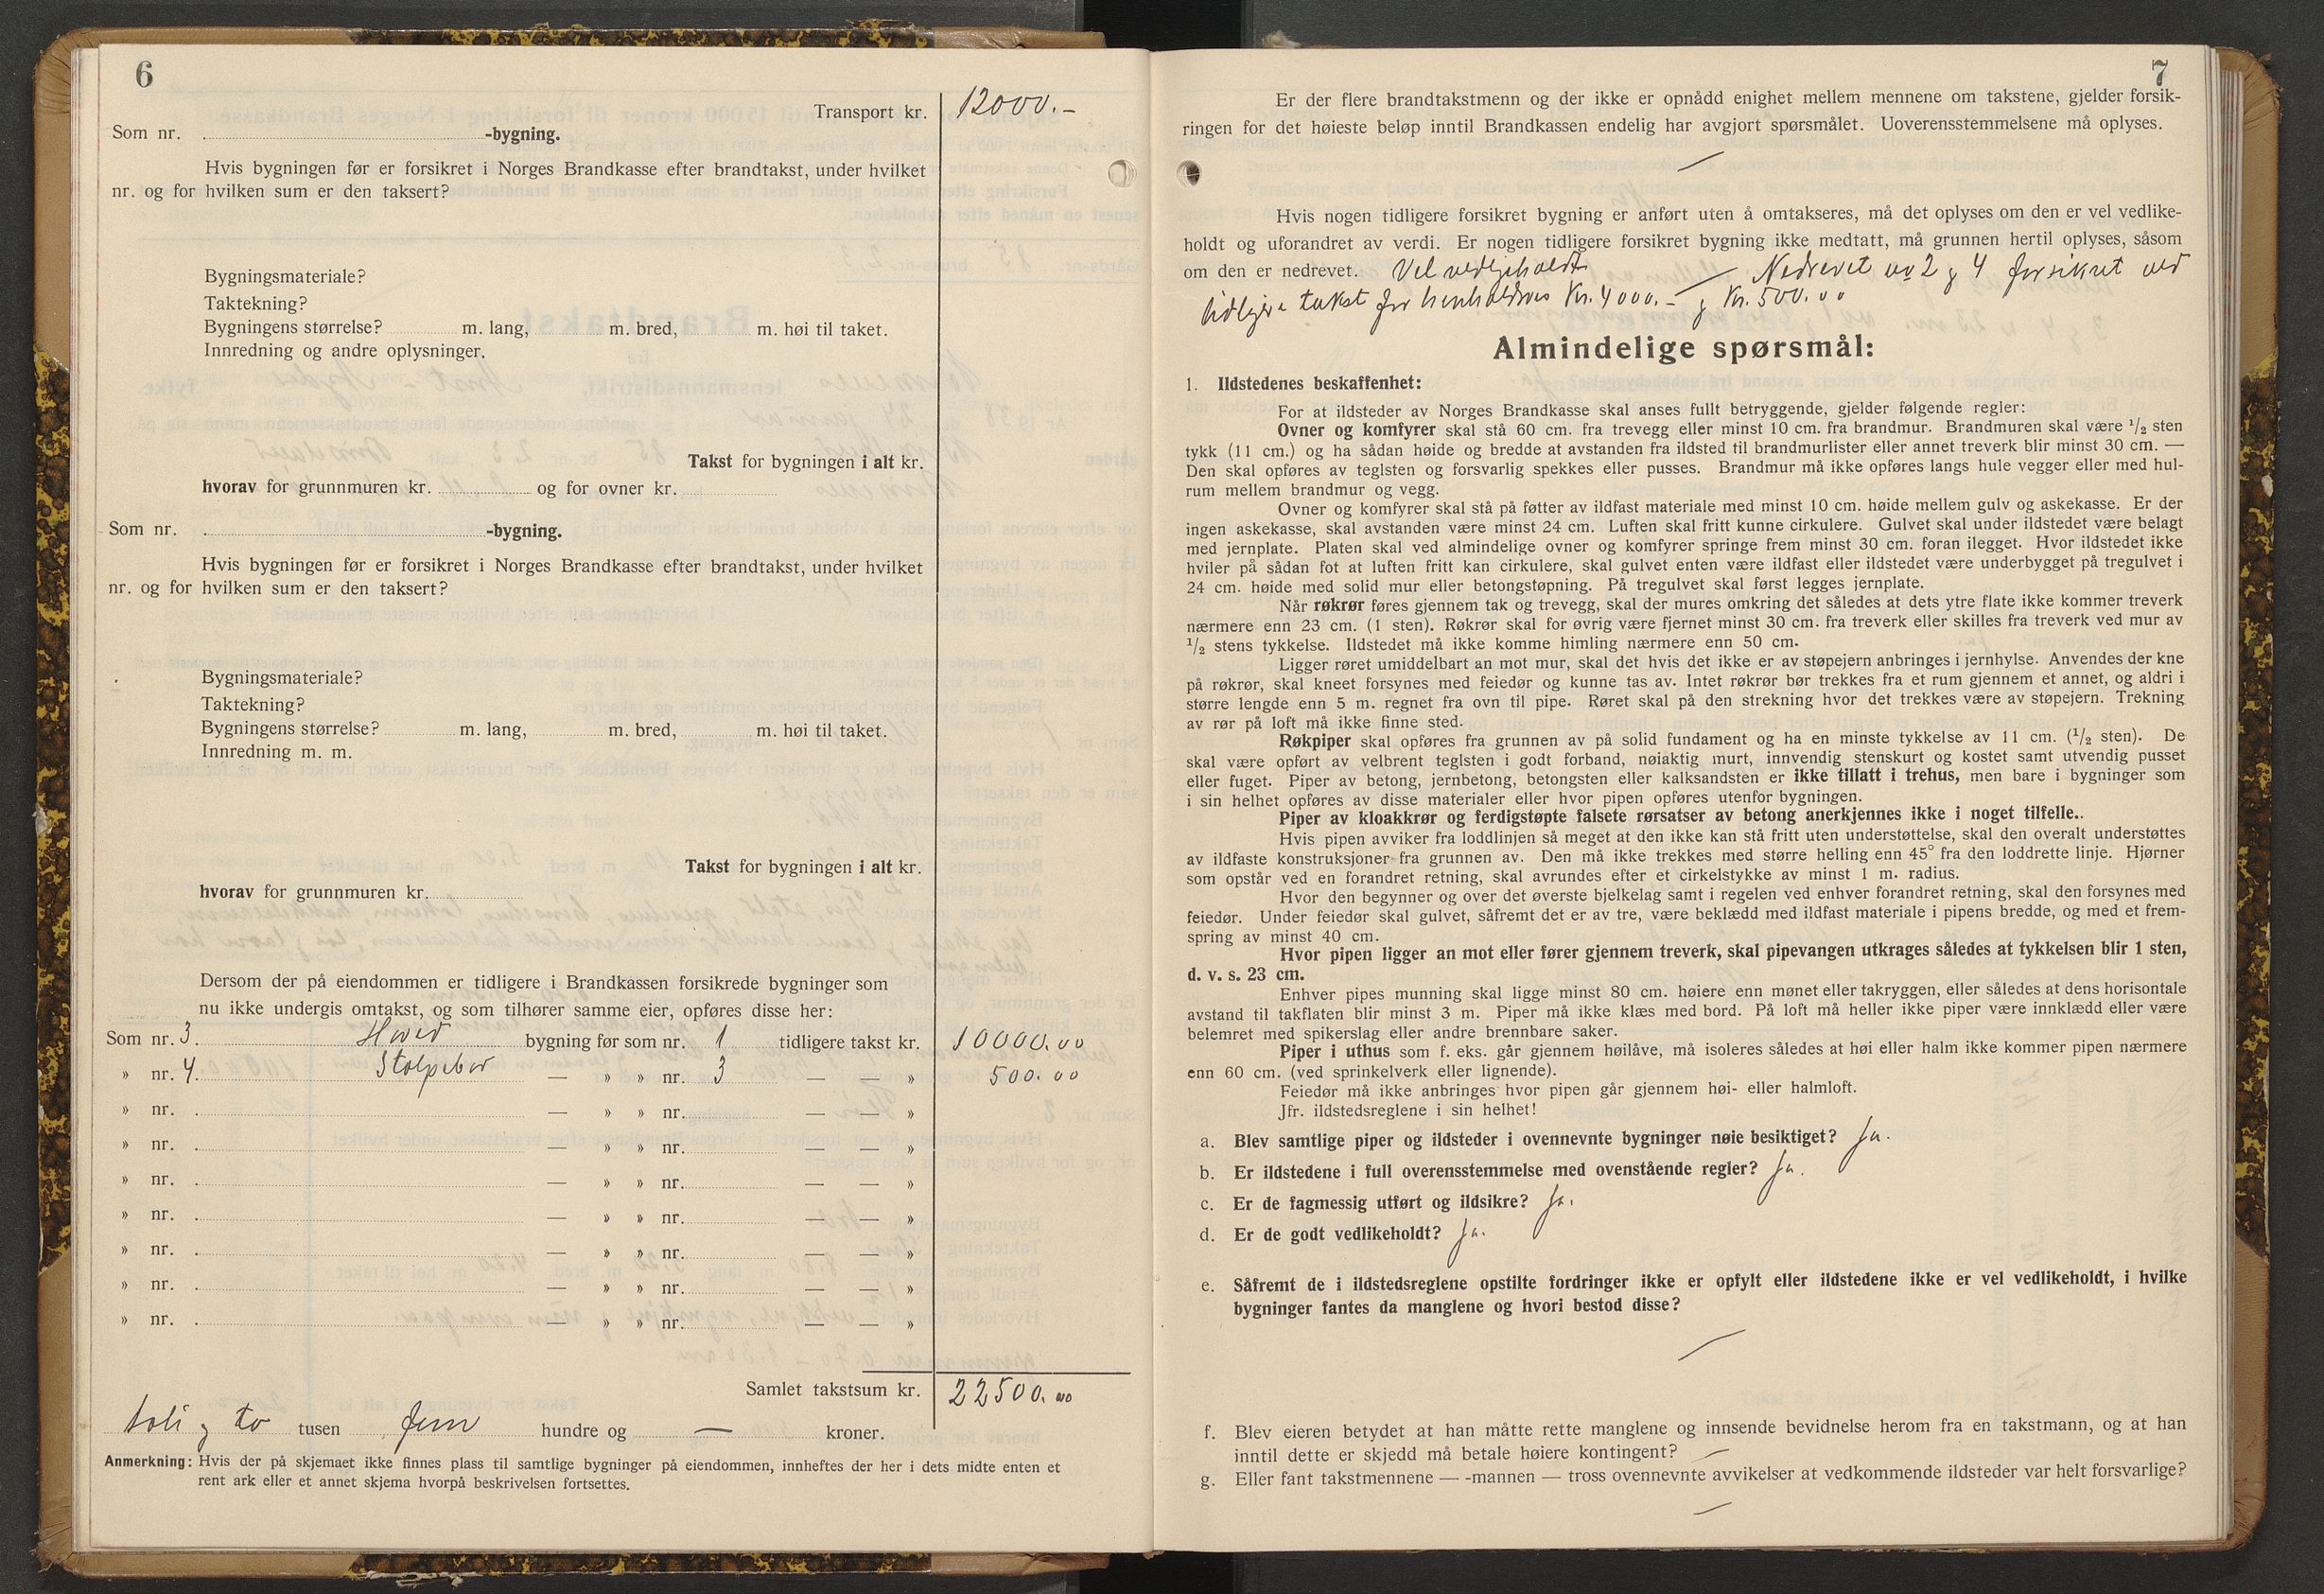 6
Transport kr. 12000.-
Som nr. -bygning.
Hvis bygningen før er forsikret i Norges Brandkasse efter brandtakst, under hvilket
nr. og for hvilken sum er den taksert?
Bygningsmateriale?
Taktekning?
Bygningens størrelse? m. lang, m. bred, m. høi til taket.
Innredning og andre oplysninger.
Takst for bygningen i alt kr.
hvorav for grunnmuren kr. og for ovner kr.
Som nr. -bygning.
Hvis bygningen før er forsikret i Norges Brandkasse efter brandtakst, under hvilket
nr. og for hvilken sum er den taksert?
Bygningsmateriale?
Taktekning?
Bygningens størrelse? m. lang, m. bred, m. høi til taket.
Innredning m. m.
Takst for bygningen i alt kr.
hvorav for grunnmuren kr.
Dersom der på eiendommen er tidligere i Brandkassen forsikrede bygninger som
nu ikke undergis omtakst, og som tilhører samme eier, opføres disse her:
Som nr. 3. Hoved bygning før som nr. 1 tidligere takst kr. 10000.00
» nr. 4. Stolpebod — » » nr. 3 — — » 500.00
» nr. . — » » nr. — — »
» nr. . — » » nr. — — »
» nr. . — » » nr. — — »
» nr. . — » » nr. — — »
» nr. . — » » nr. — — »
» nr. . — » » nr. — — »
» nr. . — » » nr. — — »
Samlet takstsum kr. 22500.00
to tusen fem hundre og — kroner.
Anmerkning: Hvis der på skjemaet ikke finnes plass til samtlige bygninger på eiendommen, innheftes der her i dets midte enten et
rent ark eller et annet skjema hvorpå beskrivelsen fortsettes.
7
Er der flere brandtakstmenn og der ikke er opnådd enighet mellem mennene om takstene, gjelder forsik-
ringen for det høieste beløp inntil Brandkassen endelig har avgjort spørsmålet. Uoverensstemmelsene må oplyses.
—
Hvis nogen tidligere forsikret bygning er anført uten å omtakseres, må det oplyses om den er vel vedlike-
holdt og uforandret av verdi. Er nogen tidligere forsikret bygning ikke medtatt, må grunnen hertil oplyses, såsom
om den er nedrevet. Vel vedlikeholdt — Nedrevet nr 2 og 4 forsikret ved
tidligere takst for henholdsvis Kr. 4000.- og Kr. 500.00
Almindelige spørsmål:
1. Ildstedenes beskaffenhet:
For at ildsteder av Norges Brandkasse skal anses fullt betryggende, gjelder følgende regler:
Ovner og komfyrer skal stå 60 cm. fra trevegg eller minst 10 cm. fra brandmur. Brandmuren skal være ½ sten
tykk (11 cm.) og ha sådan høide og bredde at avstanden fra ildsted til brandmurlister eller annet treverk blir minst 30 cm. —
Den skal opføres av teglsten og forsvarlig spekkes eller pusses. Brandmur må ikke opføres langs hule vegger eller med hul-
rum mellem brandmur og vegg.
Ovner og komfyrer skal stå på føtter av ildfast materiale med minst 10 cm. høide mellem gulv og askekasse. Er der
ingen askekasse, skal avstanden være minst 24 cm. Luften skal fritt kunne cirkulere. Gulvet skal under ildstedet være belagt
med jernplate. Platen skal ved almindelige ovner og komfyrer springe frem minst 30 cm. foran ilegget. Hvor ildstedet ikke
hviler på sådan fot at luften fritt kan cirkulere, skal gulvet enten være ildfast eller ildstedet være underbygget på tregulvet i
24 cm. høide med solid mur eller betongstøpning. På tregulvet skal først legges jernplate.
Når røkrør føres gjennem tak og trevegg, skal der mures omkring det således at dets ytre flate ikke kommer treverk
nærmere enn 23 cm. (1 sten). Røkrør skal for øvrig være fjernet minst 30 cm. fra treverk eller skilles fra treverk ved mur av
½ stens tykkelse. Ildstedet må ikke komme himling nærmere enn 50 cm.
Ligger røret umiddelbart an mot mur, skal det hvis det ikke er av støpejern anbringes i jernhylse. Anvendes der kne
på røkrør, skal kneet forsynes med feiedør og kunne tas av. Intet røkrør bør trekkes fra et rum gjennem et annet, og aldri i
større lengde enn 5 m. regnet fra ovn til pipe. Røret skal på den strekning hvor det trekkes være av støpejern. Trekning
av rør på loft må ikke finne sted.
Røkpiper skal opføres fra grunnen av på solid fundament og ha en minste tykkelse av 11 cm. (½ sten). De
skal være opført av velbrent teglsten i godt forband, nøiaktig murt, innvendig stenskurt og kostet samt utvendig pusset
eller fuget. Piper av betong, jernbetong, betongsten eller kalksandsten er ikke tillatt i trehus, men bare i bygninger som
i sin helhet opføres av disse materialer eller hvor pipen opføres utenfor bygningen.
Piper av kloakkrør og ferdigstøpte falsete rørsatser av betong anerkjennes ikke i noget tilfelle..
Hvis pipen avviker fra loddlinjen så meget at den ikke kan stå fritt uten understøttelse, skal den overalt understøttes
av ildfaste konstruksjoner fra grunnen av. Den må ikke trekkes med større helling enn 45° fra den loddrette linje. Hjørner
som opstår ved en forandret retning, skal avrundes efter et cirkelstykke av minst 1 m. radius.
Hvor den begynner og over det øverste bjelkelag samt i regelen ved enhver forandret retning, skal den forsynes med
feiedør. Under feiedør skal gulvet, såfremt det er av tre, være beklædd med ildfast materiale i pipens bredde, og med et frem-
spring av minst 40 cm.
Hvor pipen ligger an mot eller fører gjennem treverk, skal pipevangen utkrages således at tykkelsen blir 1 sten,
d. v. s. 23 cm.
Enhver pipes munning skal ligge minst 80 cm. høiere enn mønet eller takryggen, eller således at dens horisontale
avstand til takflaten blir minst 3 m. Piper må ikke klæs med bord. På loft må heller ikke piper være innklædd eller være
belemret med spikerslag eller andre brennbare saker.
Piper i uthus som f. eks. går gjennem høilåve, må isoleres således at høi eller halm ikke kommer pipen nærmere
enn 60 cm. (ved sprinkelverk eller lignende).
Feiedør må ikke anbringes hvor pipen går gjennem høi- eller halmloft.
Jfr. ildstedsreglene i sin helhet!
a. Blev samtlige piper og ildsteder i ovennevnte bygninger nøie besiktiget? Ja.
b. Er ildstedene i full overensstemmelse med ovenstående regler? Ja.
c. Er de fagmessig utført og ildsikre? Ja.
d. Er de godt vedlikeholdt? Ja.
e. Såfremt de i ildstedsreglene opstilte fordringer ikke er opfylt eller ildstedene ikke er vel vedlikeholdt, i hvilke
bygninger fantes da manglene og hvori bestod disse?
—
f. Blev eieren betydet at han måtte rette manglene og innsende bevidnelse herom fra en takstmann, og at han
inntil dette er skjedd må betale høiere kontingent? —
g. Eller fant takstmennene — -mannen — tross ovennevnte avvikelser at vedkommende ildsteder var helt forsvarlige?
—